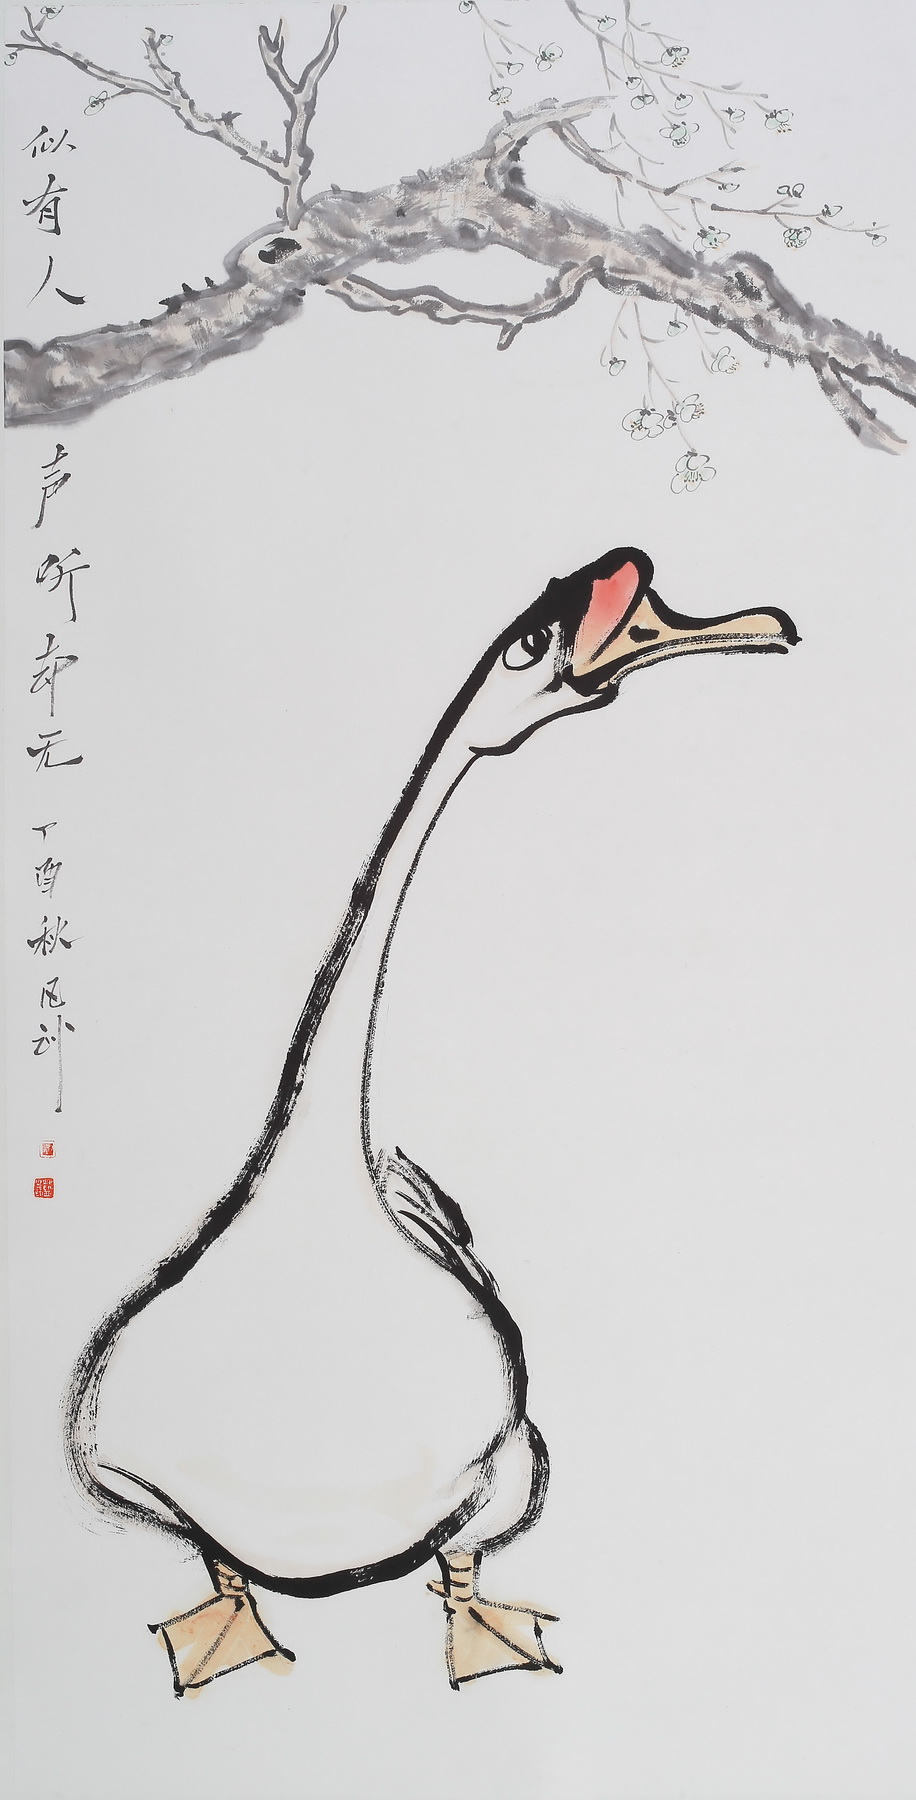 似有人声听却无
丁酉秋